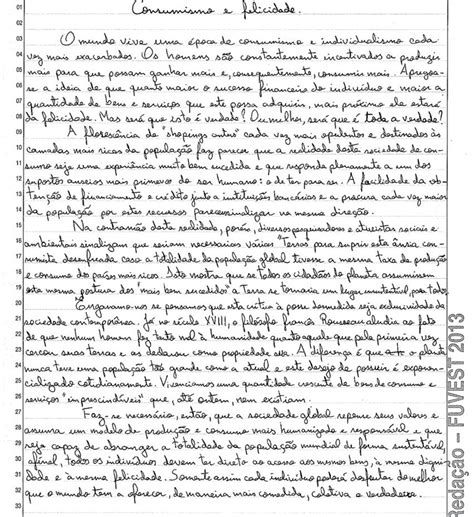 Consumismo e felicidade.
O mundo vive uma época de consumismo e individualismo cada
vez mais exacerbados. Os homens são constantemente incentivados a produzir
mais para que possam ganhar mais e, consequentemente, consumir mais. Apregoa-
se a ideia de que quanto maior o sucesso financeiro do indivíduo e maior a
quantidade de bens e serviços que este possa adquirir, mais próximo ele estará
da felicidade. Mas será que isto é verdade? Ou melhor, será que é toda a verdade?
A florescência de "shoppings centers" cada vez mais opulentos e destinados às
camadas mais ricas da população faz parecer que a realidade desta sociedade de con-
sumo seja uma experiência muito bem sucedida e que responda plenamente a um dos
supostos anseios mais primevos do ser humano: o de ter para ser. A facilidade da ob-
tenção de financiamento e crédito junto a instituições bancárias e a procura cada vez maior
da população por estes recursos parecem sinalizar na mesma direção.
Na contramão desta realidade, porém, diversos pesquisadores e ativistas sociais e
ambientais sinalizam que seriam necessárias várias "Terras" para suprir esta ânsia con-
sumista desenfreada caso a totalidade da população global tivesse a mesma taxa de produção
e consumo dos países mais ricos. Isto mostra que se todos os cidadãos do planeta assumissem
esta mesma postura dos "mais bem sucedidos" a Terra se tornaria um lugar inustentável, para todos.
Enganamo-nos se pensamos que esta crítica à posse desmedida seja exclusividade da
sociedade contemporânea. Já no século XVIII, o filósofo francês Rousseau aludia ao fato
de que nenhum homem fez tanto mal à humanidade quanto aquele que pela primeira vez
cercou suas terras e as declarou como propriedade sua. A diferença é que o planeta
nunca teve uma população tão grande como a atual e este desejo de possuir é exponen-
cializado cotidianamente. Vivenciamos uma quantidade crescente de bens de consumo e
serviços "imprescindíveis" que, até ontem, nem existiam.
Faz-se necessário, então, que a sociedade global repense seus valores e
assuma um modelo de produção e consumo mais humanizado e responsável e que
seja capaz de abranger a totalidade da população mundial de forma sustentável,
afinal, todos os indivíduos devem ter direito ao acesso aos mesmos bens, à mesma digni-
dade e à mesma felicidade. Somente assim cada indivíduo poderá desfrutar do melhor
que o mundo tem a oferecer, de maneira mais comedida, coletiva e verdadeira.
Redação – FUVEST 2013